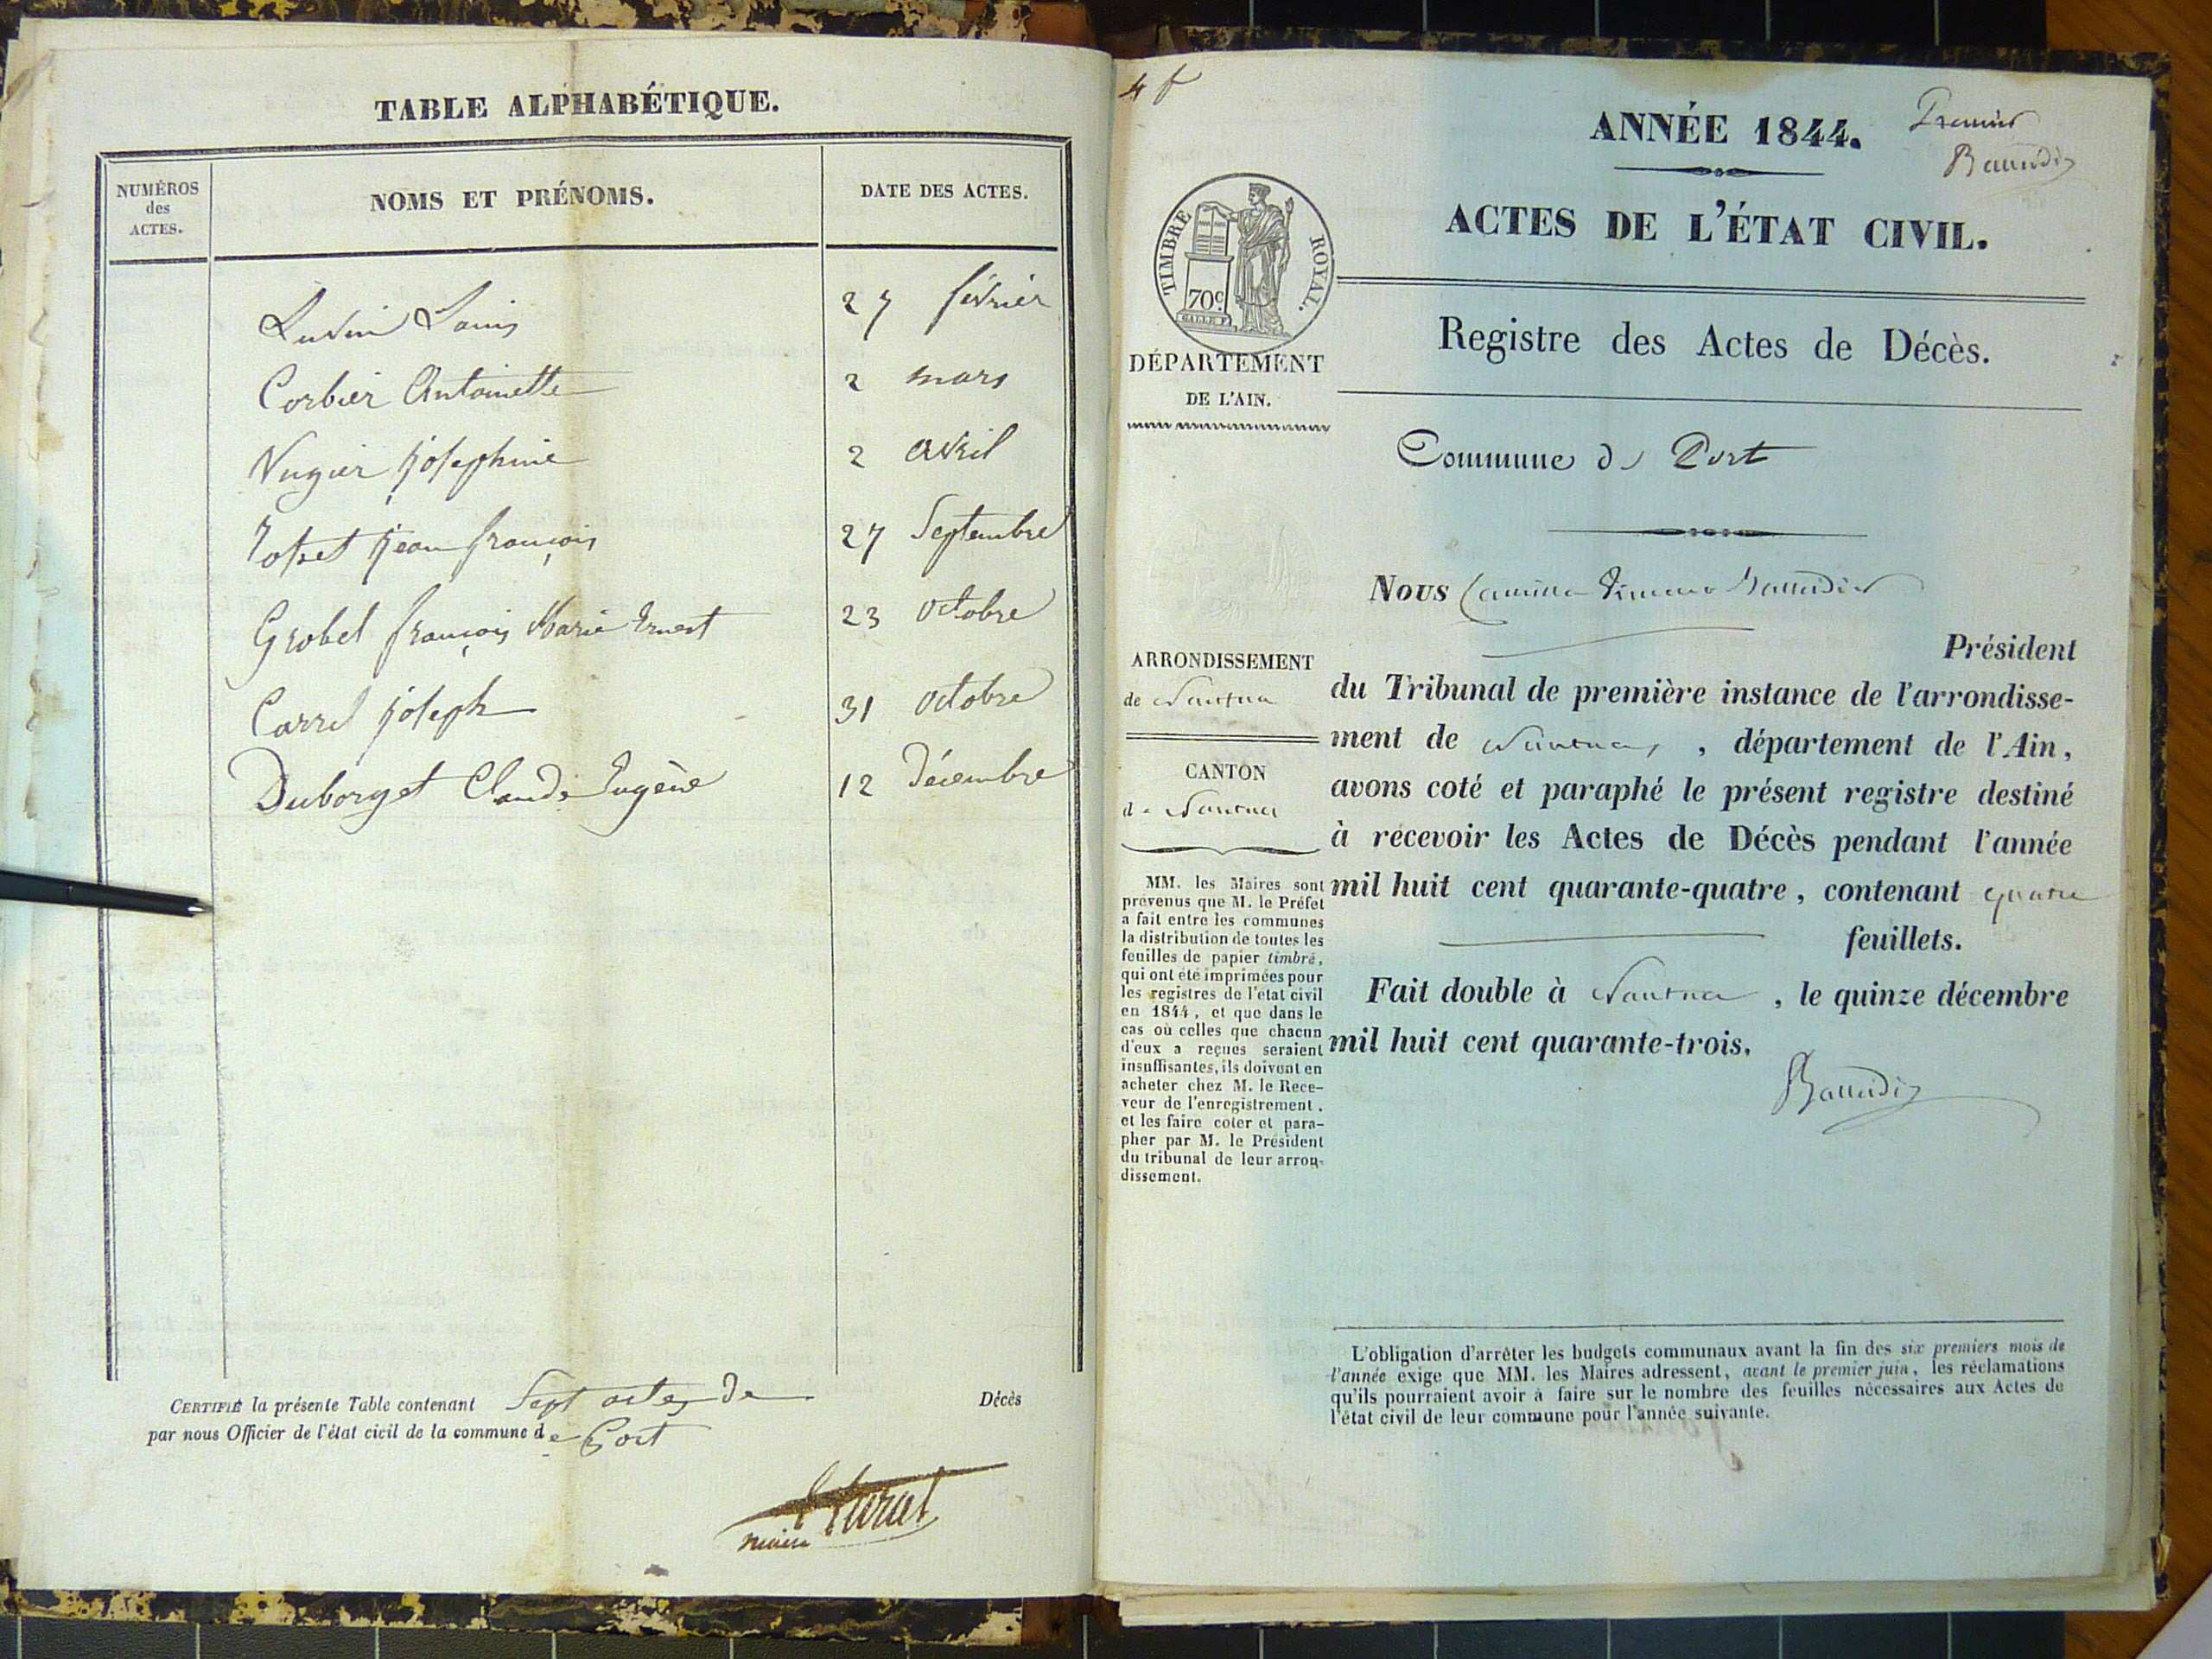 TABLE ALPHABÉTIQUE.
NUMÉROS
des
ACTES.
NOMS ET PRÉNOMS.
DATE DES ACTES.
Louis 27 février
Corbier Antoinette 2 mars
Vugier josephine 2 avril
jean françois 27 Septembre
Grobel françois Marie Ernest 23 octobre
Carrel joseph 31 octobre
Duborget Claude Eugène 12 Décembre
CERTIFIÉ la présente Table contenant Sept actes de Décès
par nous Officier de l'état civil de la commune de Port
maire
4 f
ANNÉE 1844.
Premier
Baudier
ACTES DE L'ÉTAT CIVIL.
TIMBRE ROYAL.
70c
Registre des Actes de Décès.
DÉPARTEMENT
DE L'AIN.
Commune de Port
Nous Camille
Président
ARRONDISSEMENT
de Nantua
CANTON
de Nantua
du Tribunal de première instance de l'arrondisse-
ment de Nantua, département de l'Ain,
avons coté et paraphé le présent registre destiné
à recevoir les Actes de Décès pendant l'année
mil huit cent quarante-quatre, contenant quatre
feuillets.
Fait double à Nantua, le quinze décembre
mil huit cent quarante-trois.
MM. les Maires sont
prévenus que M. le Préfet
a fait entre les communes
la distribution de toutes les
feuilles de papier timbré,
qui ont été imprimées pour
les registres de l'état civil
en 1844, et que dans le
cas où celles que chacun
d'eux a reçues seraient
insuffisantes, ils doivent en
acheter chez M. le Rece-
veur de l'enregistrement,
et les faire coter et para-
pher par M. le Président
du tribunal de leur arron-
dissement.
L'obligation d'arrêter les budgets communaux avant la fin des six premiers mois de
l'année exige que MM. les Maires adressent, avant le premier juin, les réclamations
qu'ils pourraient avoir à faire sur le nombre des feuilles nécessaires aux Actes de
l'état civil de leur commune pour l'année suivante.